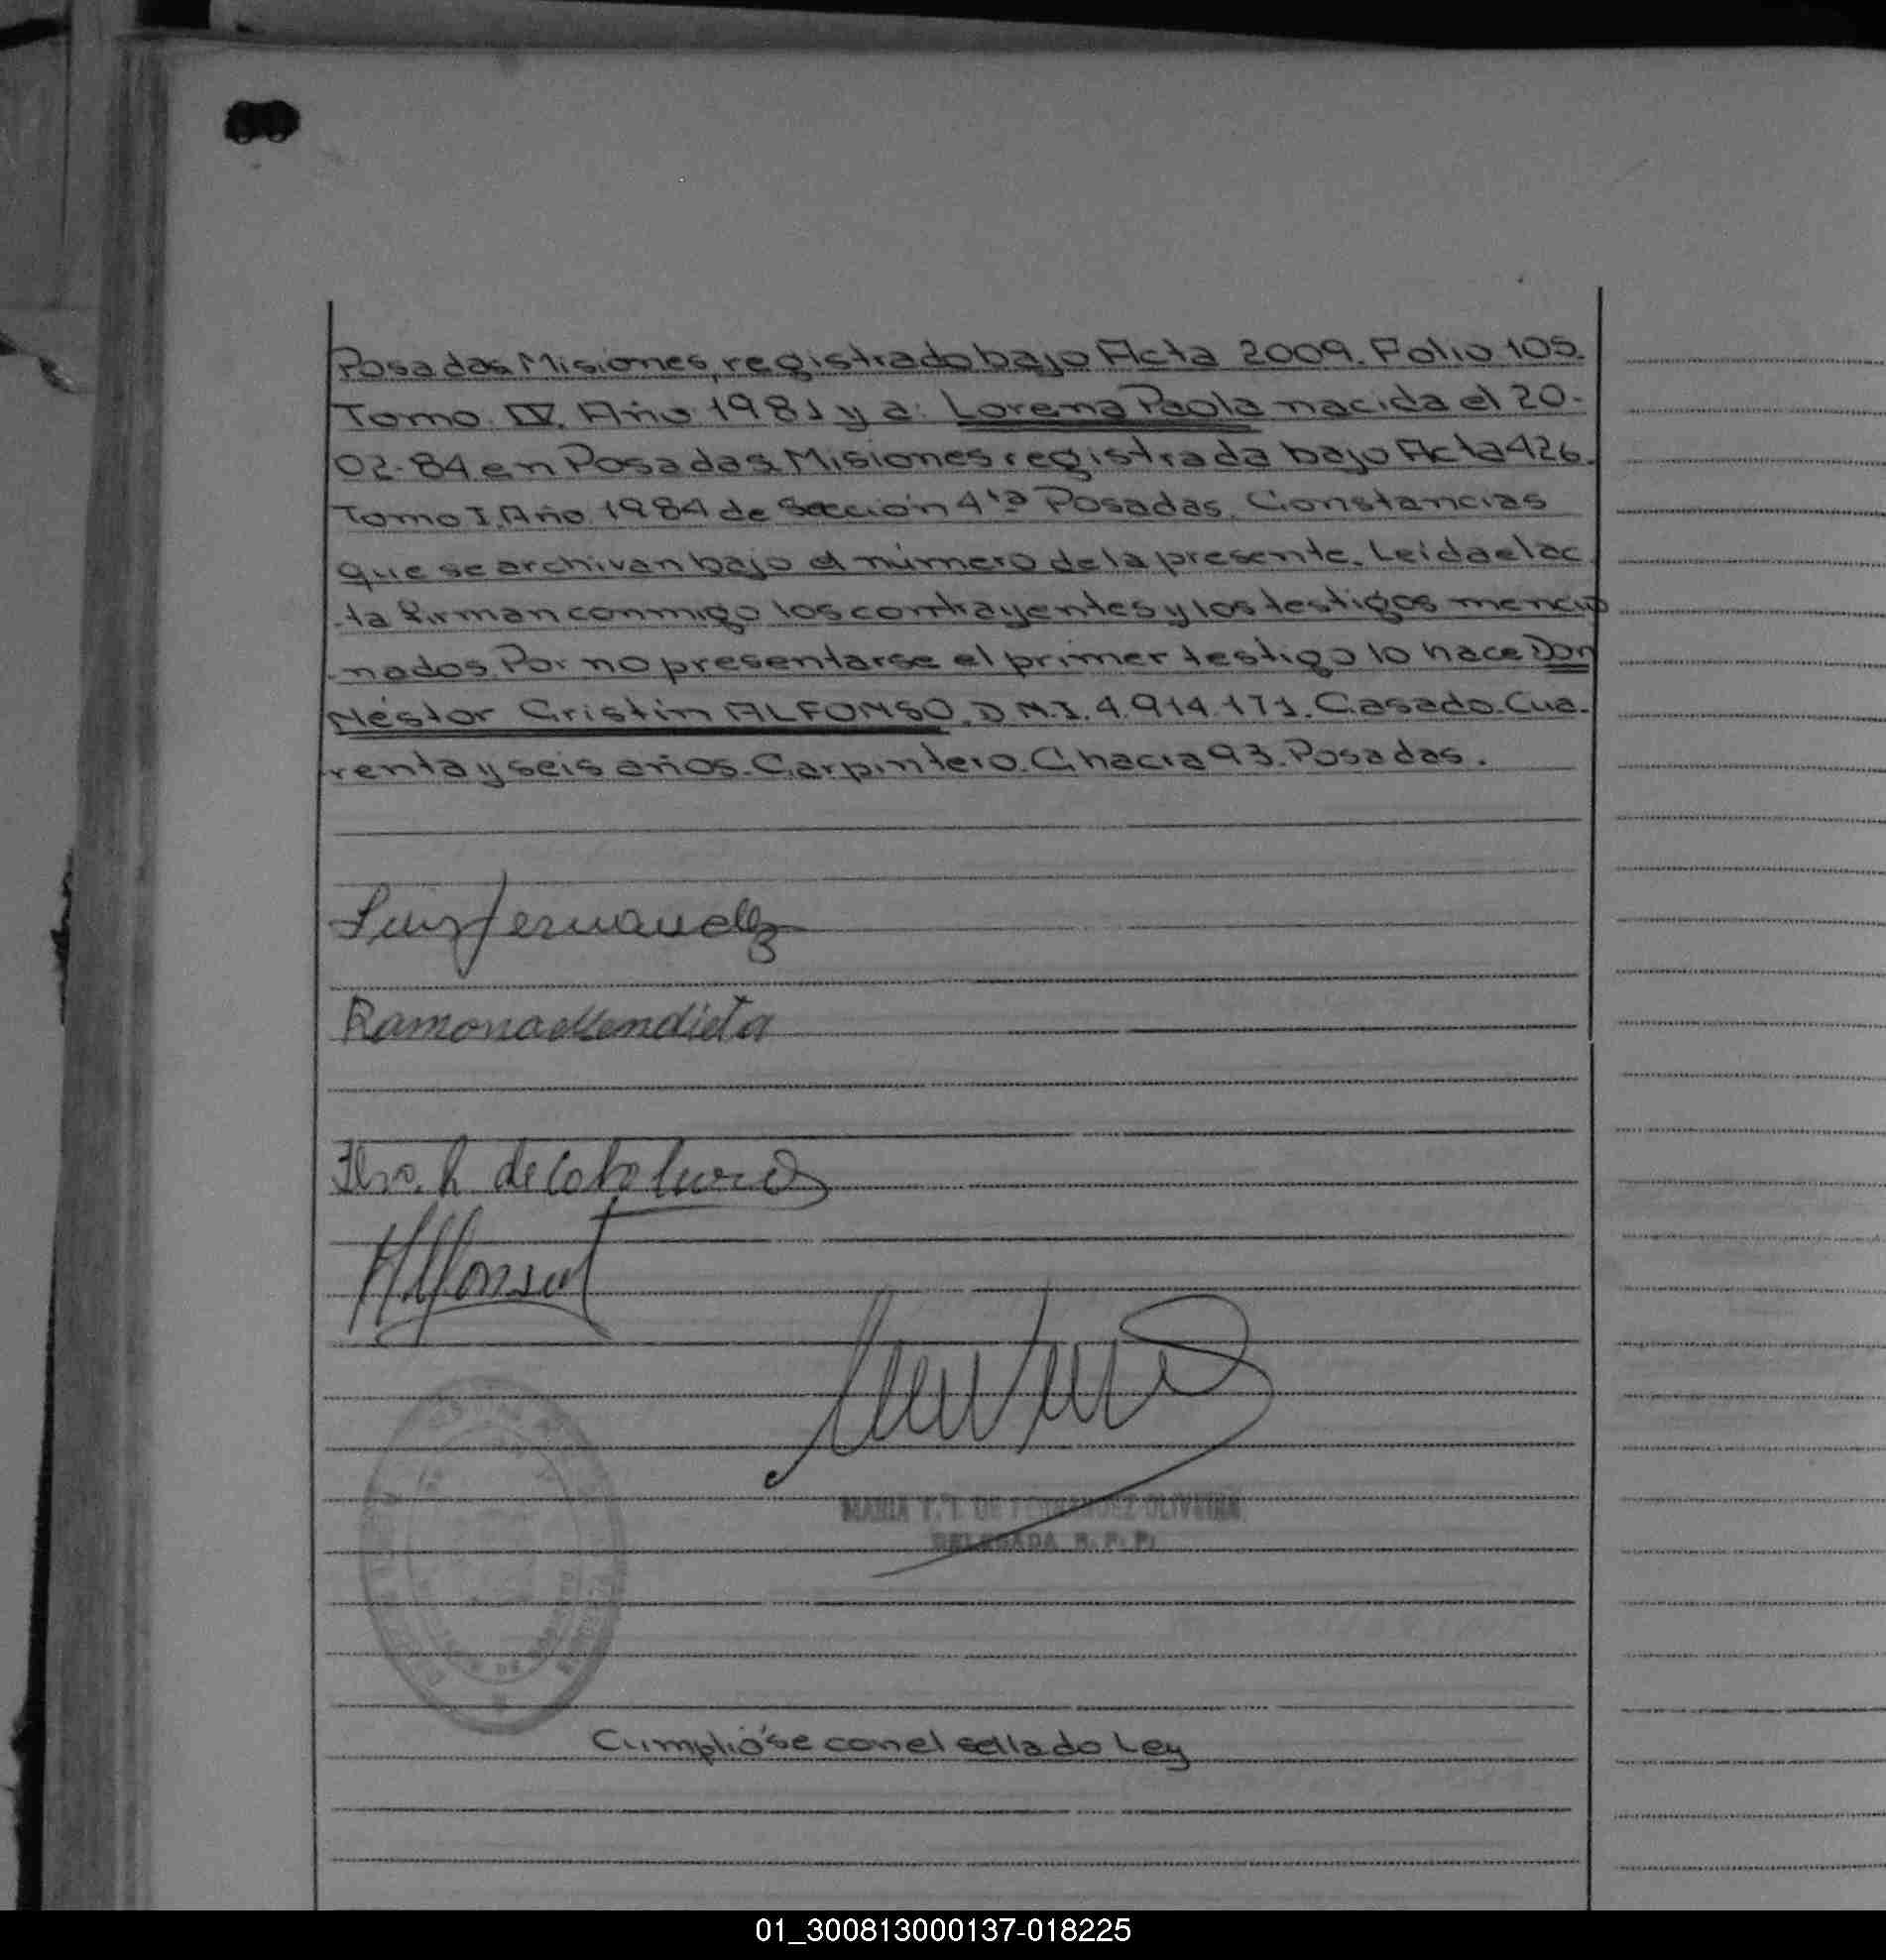 Posadas Misiones, registrado bajo Acta 2009. Folio 105.
Tomo. IV. Año 1981 y a: Lorena Paola nacida el 20-
02-84 en Posadas Misiones registrada bajo Acta 426.
Tomo I. Año 1984 de Sección 4ta Posadas. Constancias
que se archivan bajo el número de la presente. Leída el ac
-ta firman conmigo los contrayentes y los testigos mencio
-nados. Por no presentarse el primer testigo lo hace Don
Néstor Cristín ALFONSO. D.N.I. 4.914.171. Casado. Cua-
renta y seis años. Carpintero. Chacra 93. Posadas.
Luis Fernandez
Ramona Mendieta
de
Alfonso
MARIA T. T. DE FERNANDEZ OLIVEIRA
DELEGADA R. P. P.
Cumplióse con el sellado Ley
01_300813000137-018225